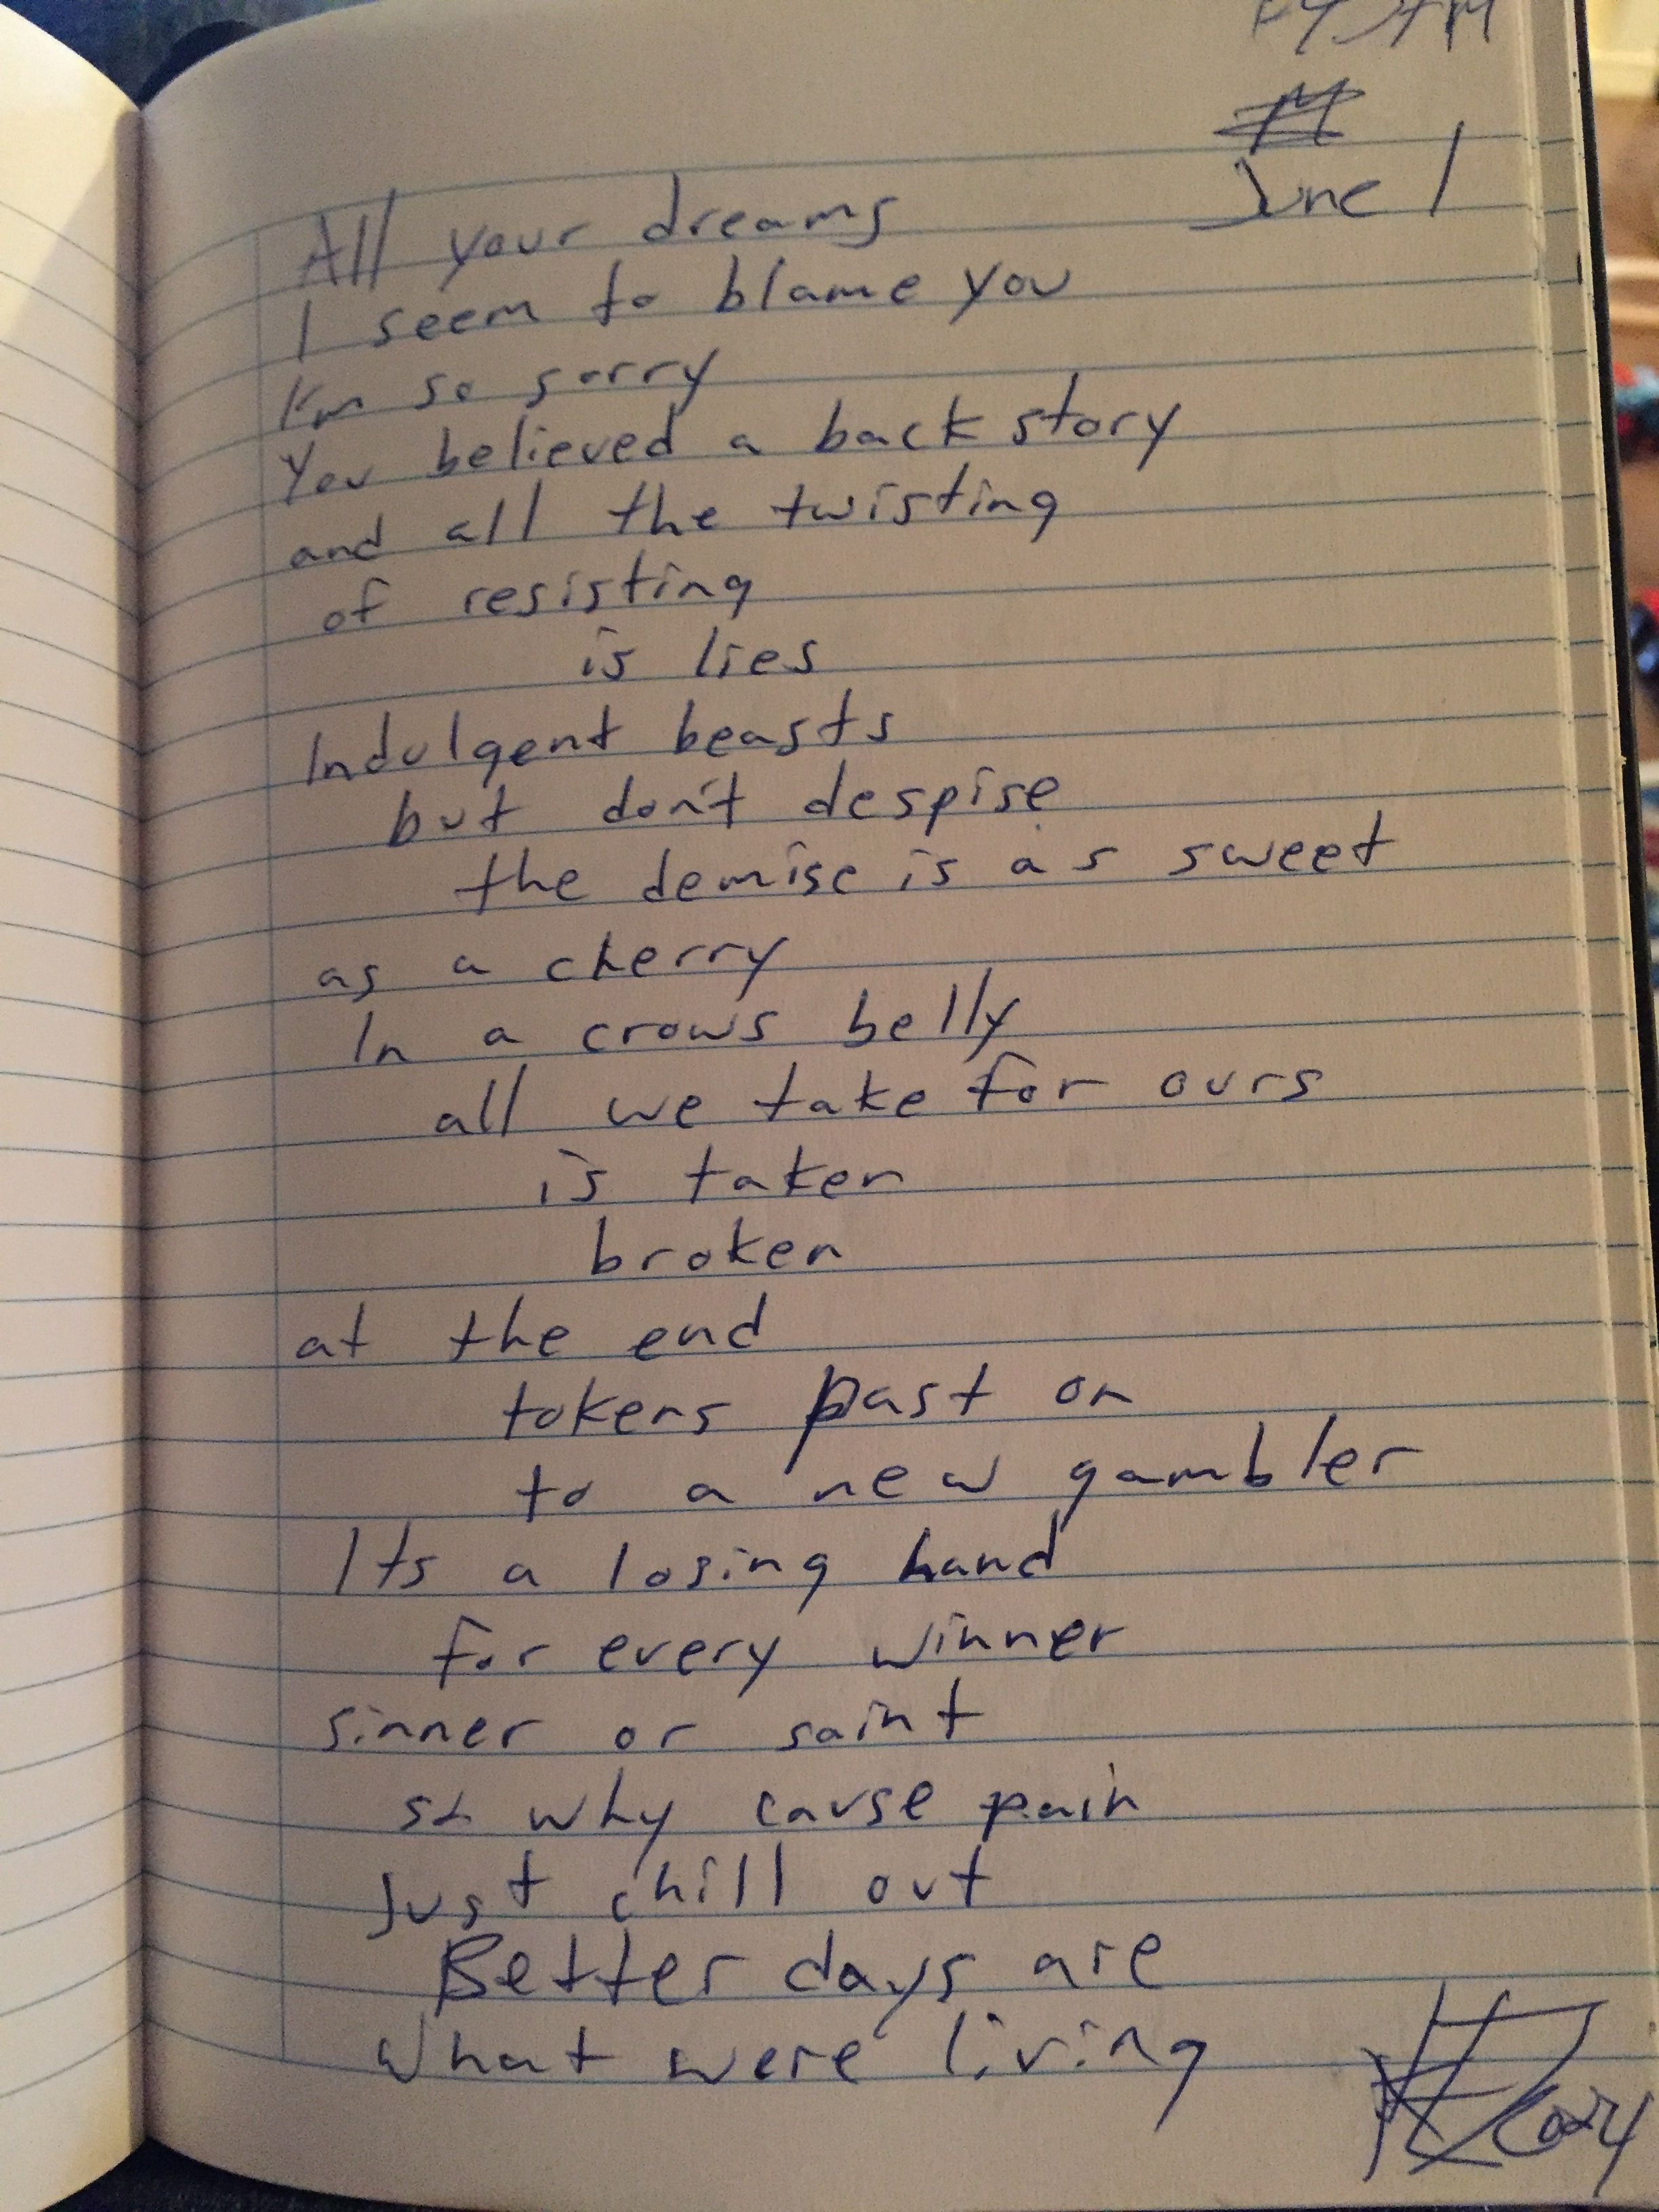 June 1
All your dreams
I seem to blame you
I'm so sorry
You believed a back story
and all the twisting
of resisting
is lies
Indulgent beasts
but don't despise
the demise is as sweet
as a cherry
In a crows belly
all we take for ours
is taken
broken
at the end
tokens past on
to a new gambler
Its a losing hand
for every winner
sinner or saint
so why cause pain
Just chill out
Better days are
what were living
2024